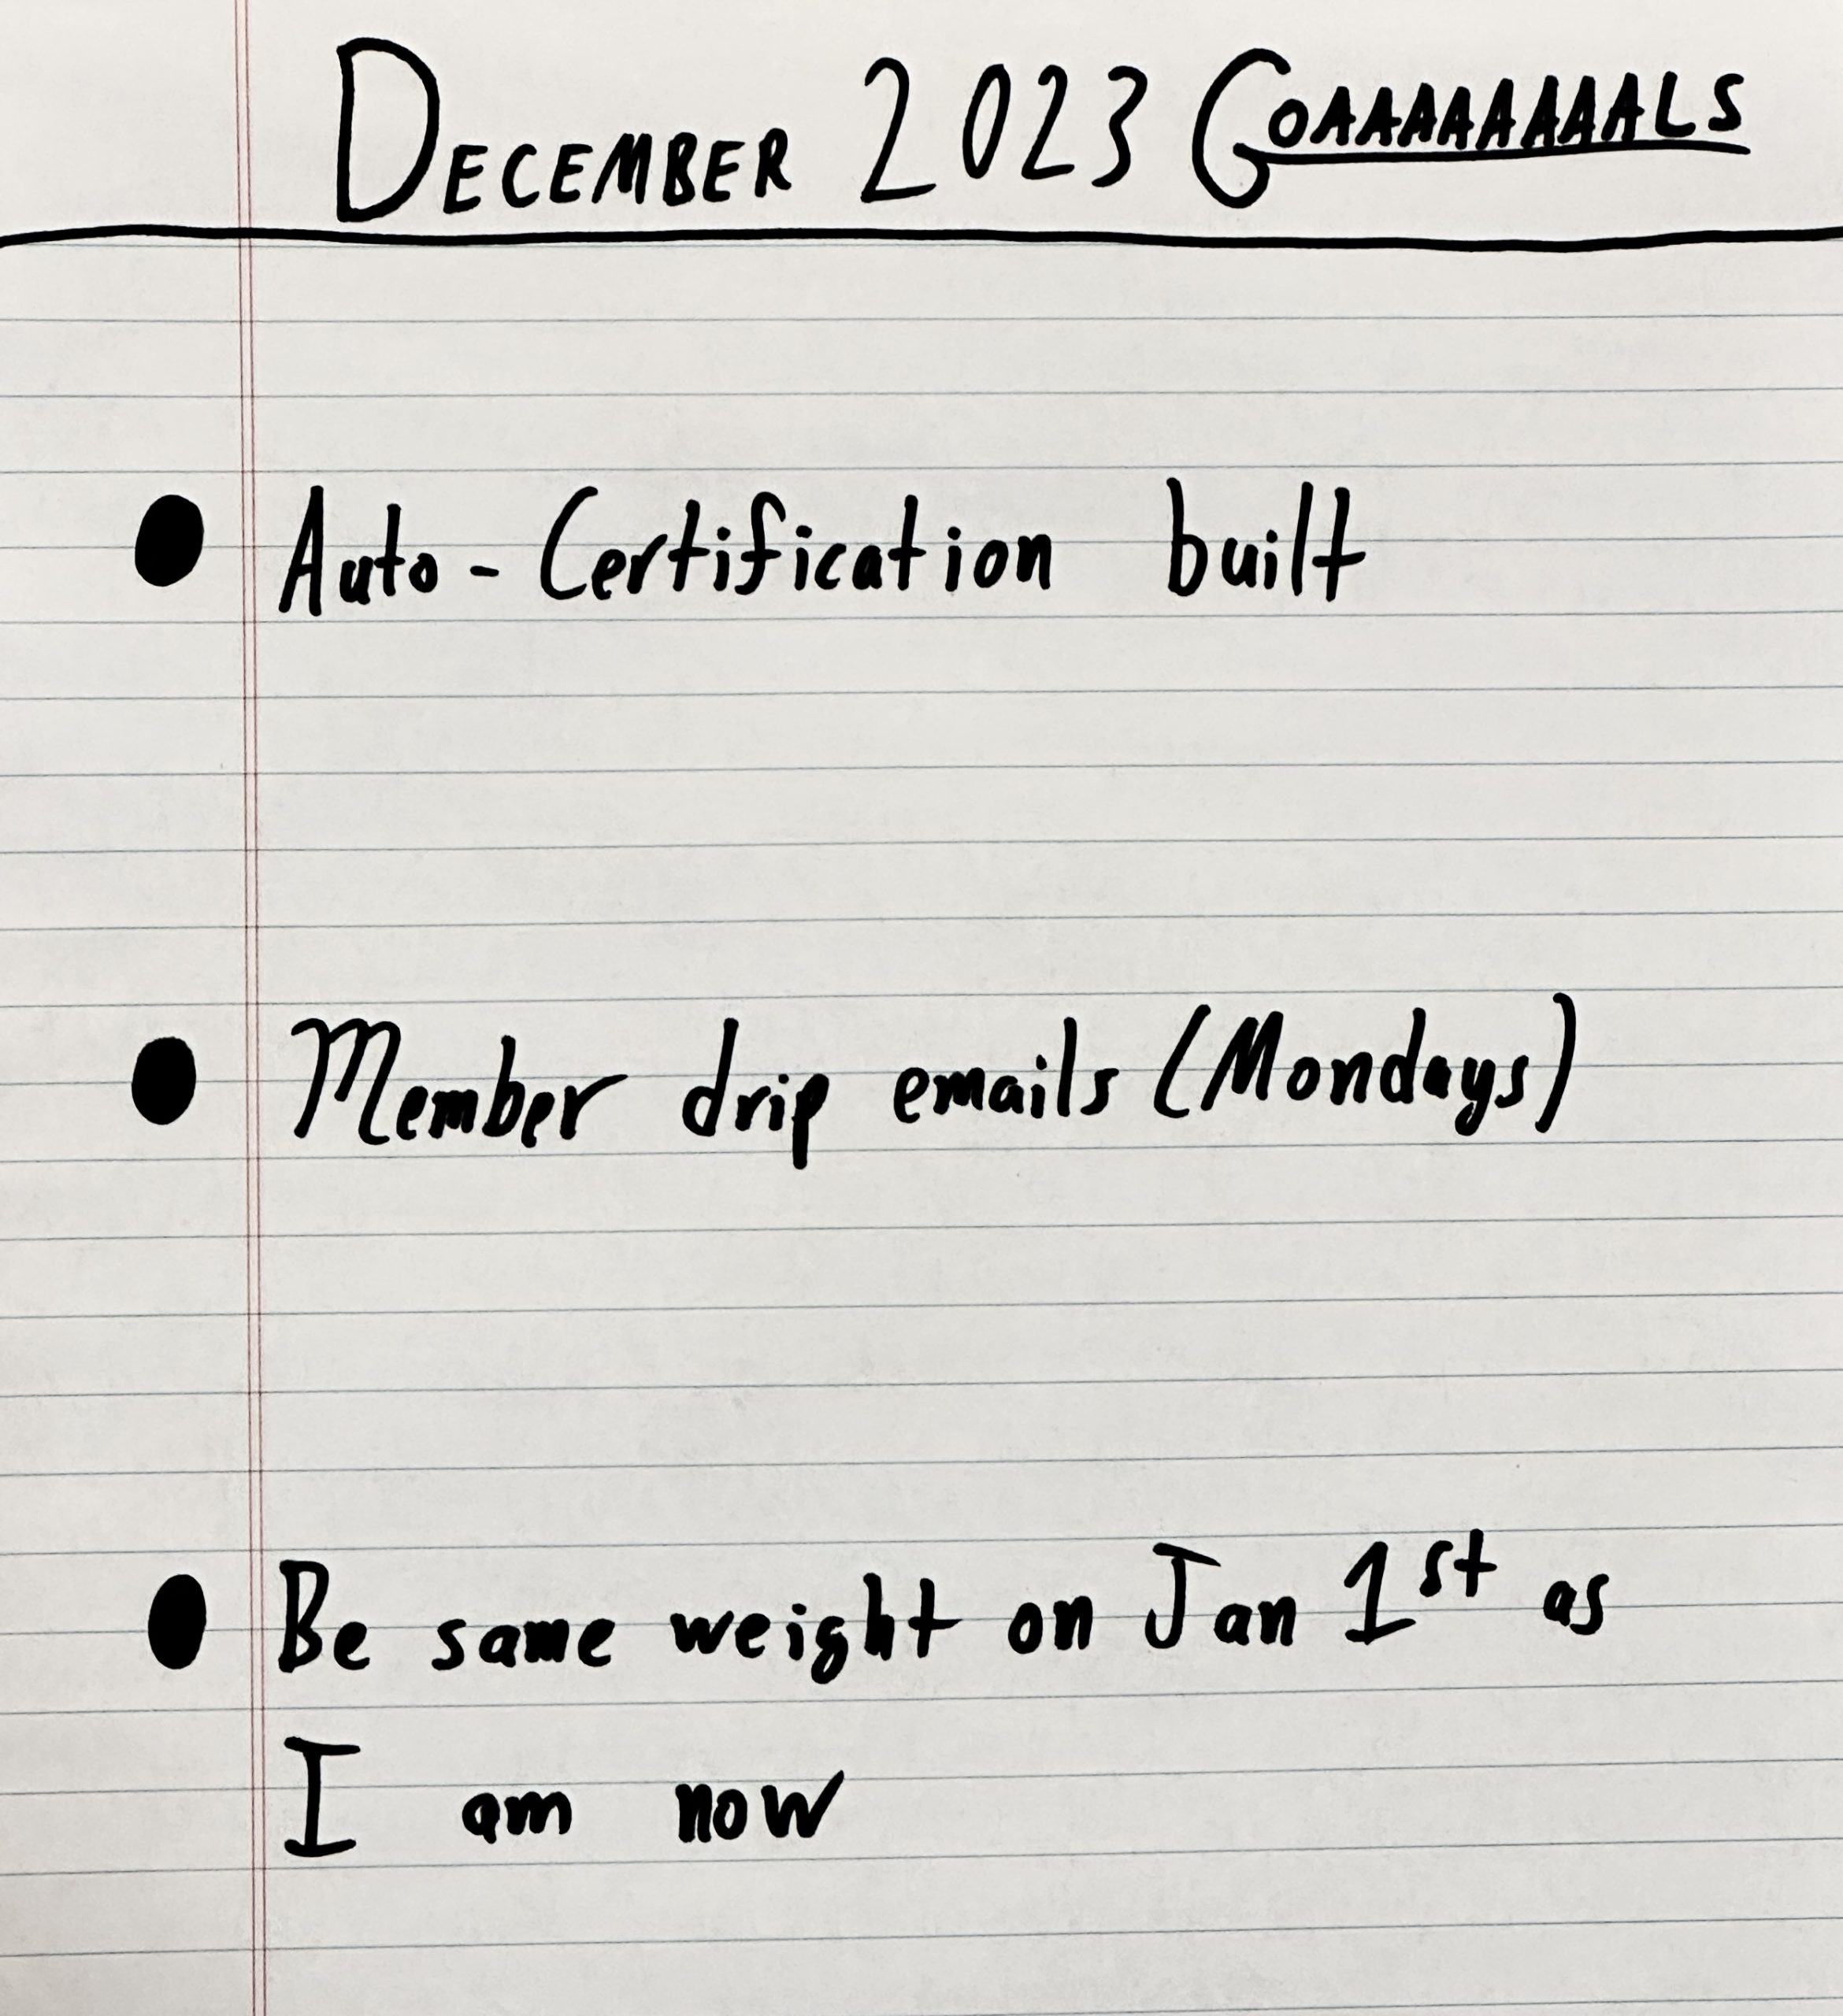 DECEMBER 2023 GOAAAAAAAALS
● Auto-Certification built
● Member drip emails (Mondays)
● Be same weight on Jan 1st as
I am now